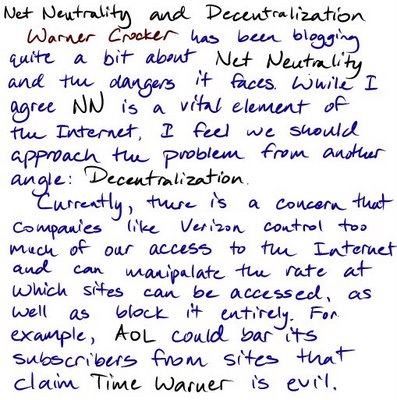 Net Neutrality and Decentralization
Warner Crocker has been blogging
quite a bit about Net Neutrality
and the dangers it faces. While I
agree NN is a vital element of
the Internet, I feel we should
approach the problem from another
angle: Decentralization.
Currently, there is a concern that
companies like Verizon control too
much of our access to the Internet
and can manipalate the rate at
which sites can be accessed, as
well as block it entirely. For
example, AOL could bar its
subscribers from sites that
claim Time Warner is evil.